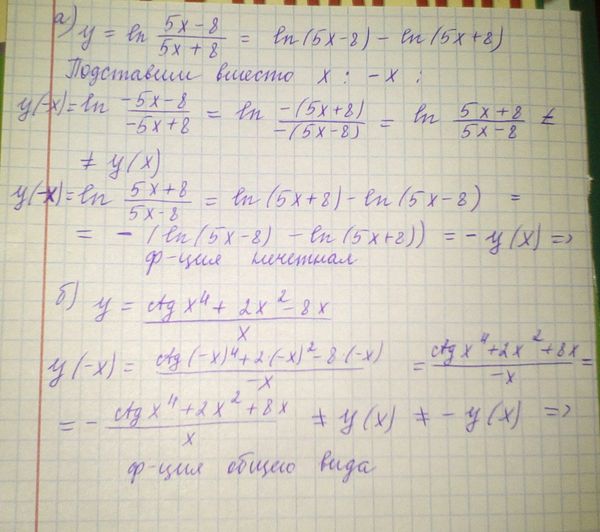 а) y = ln (5x-8)/(5x+8) = ln(5x-8) - ln(5x+8)
Подставим вместо x : -x :
y(-x) = ln (-5x-8)/(-5x+8) = ln (-(5x+8))/(-(5x-8)) = ln (5x+8)/(5x-8) ≠
≠ y(x)
y(-x) = ln (5x+8)/(5x-8) = ln(5x+8) - ln(5x-8) =
= - (ln(5x-8) - ln(5x+8)) = - y(x) =>
ф-ция нечетная
б) y = (ctg x⁴ + 2x² - 8x)/x
y(-x) = (ctg(-x)⁴ + 2(-x)² - 8·(-x))/(-x) = (ctg x⁴ + 2x² + 8x)/(-x) =
= - (ctg x⁴ + 2x² + 8x)/x ≠ y(x) ≠ - y(x) =>
ф-ция общего вида